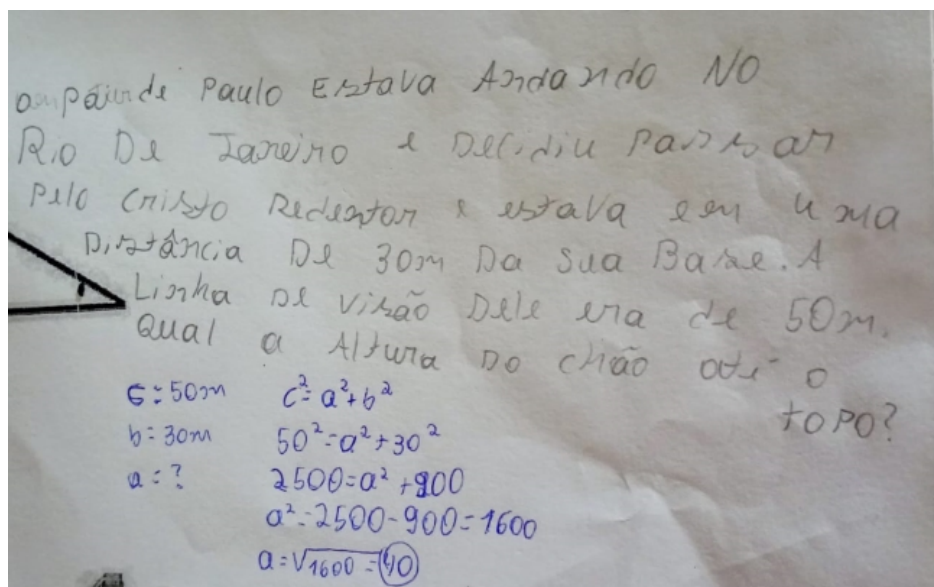 Paulo Estava Andando No
Rio De Janeiro e Decidiu Passar
Pelo Cristo Redentor e estava em uma
Distância De 30m Da Sua Base. A
Linha De Visão Dele era de 50m.
Qual a Altura Do chão até o
topo?
c = 50m c² = a² + b²
b = 30m 50² = a² + 30²
a = ? 2500 = a² + 900
a² = 2500 - 900 = 1600
a = √1600 = 40